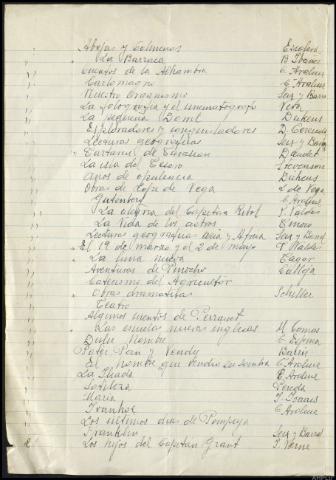 Abejas y Colmenas
La Barraca B. Ibañez
Cuentos de la Alhambra C. Araluce
Carlomagno C. Araluce
Nuestro Organismo Seix y Barral
La fotografía y el cinematógrafo Vera
La pequeña Dorrit Dickens
Exploradores y conquistadores D. Gerencia
Lecturas geográficas Seix y Barral
Tartarin de Tarascon Daudet
La isla del Tesoro Stevenson
Años de opulencia Dickens
Obras de Lope de Vega L. de Vega
Gutenberg C. Araluce
La alegria del Capitan Ribot P. Valdes
La Vida de los astros
Lecturas geográficas Asia y Africa Seix y Barral
El 19 de marzo y el 2 de mayo P. Galdos
La luna nueva Tagor
Aventuras de Pinocho Calleja
Catecismo del Agricultor
Obras dramáticas Schiller
Teatro
Algunos cuentos de Perrault
Las escuelas nuevas inglesas M. Comas
Dulce Nombre C. Espina
Peter Pan y Wendy Barrie
El hombre que vendio su sombra C. Araluce
La Iliada C. Araluce
Sotileza Pereda
Maria J. Isaacs
Ivanhoe C. Araluce
Los ultimos dias de Pompeya
Franklin Seix y Barral
Los hijos del Capitan Grant J. Verne